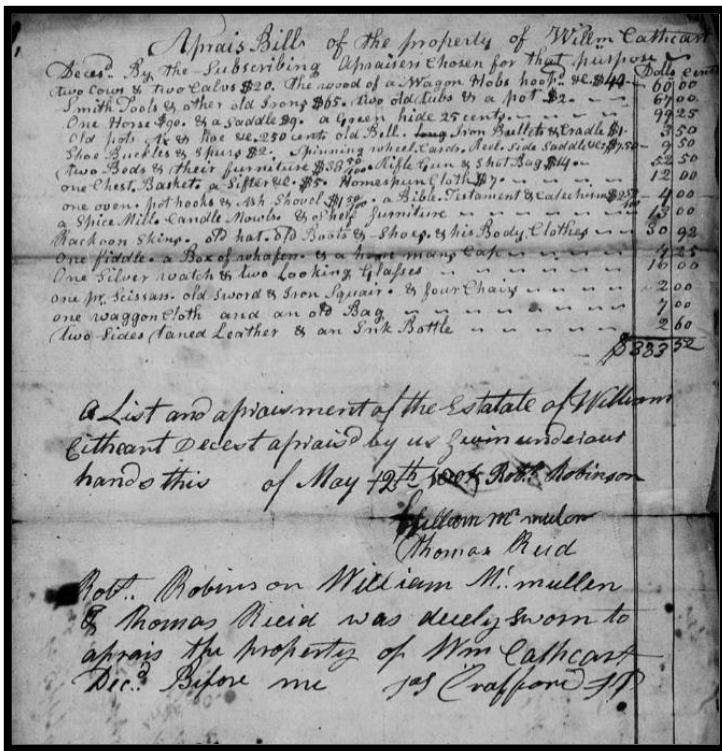 Aprais Bill of the property of Willm Cathcart
Decesd. By the Subscribing Apraisers Chosen for that purpose Dolls Cents
two Cows & two Calvs $20. the wood of a Wagon Hobs hoopd &c $40 60 00
Smith Tools & other old Irons $65. two old tubs & a pot $2 67 00
One Horse $90. & a Saddle $9. a Green hide 25 cents 99 25
Old pots Ax & hoe &c. 250 cents old Bell. Iron Bullets & Cradle $1 3 50
Shoe Buckles & Spurs $2. Spinning wheel. Cards. Reel. Side Saddle &c $7,50 9 50
two Beds & their furniture $38 50/100. Rifle Gun & Shot Bag $14 52 50
one Chest. Basket. a Sifter &c. $5. Homespun Cloth $7 12 00
one oven. pot hooks & Ash Shovel $1 50/100. a Bible. Testament & Catechism 4 00
a Spice Mill. Candle Mowls & Shelf furniture 13 00
Rackoon Skins. old hat. old Boots & Shoes. & his Body Clothes 30 92
One fiddle. a Box of & a Cap 25
One Silver watch & two Looking Glasses 16 00
one pr. Scissars. old Sword & Iron Squair. & four Chairs 2 00
one waggon Cloth and an old Bag 7 00
two Sides taned Leather & an Ink Bottle 2 60
$383 52
A List and apraisment of the Estatate of William
Cithcart Decest apraisd by us Givin under our
hands this of May 12th Robt. Robinson
William Mc mulen
Thomas Reid
Robt. Robinson William Mc. mullen
& Thomas Rieid was decely sworn to
aprais the property of Wm Cathcart
Decd. Before me Jas Crafford JP